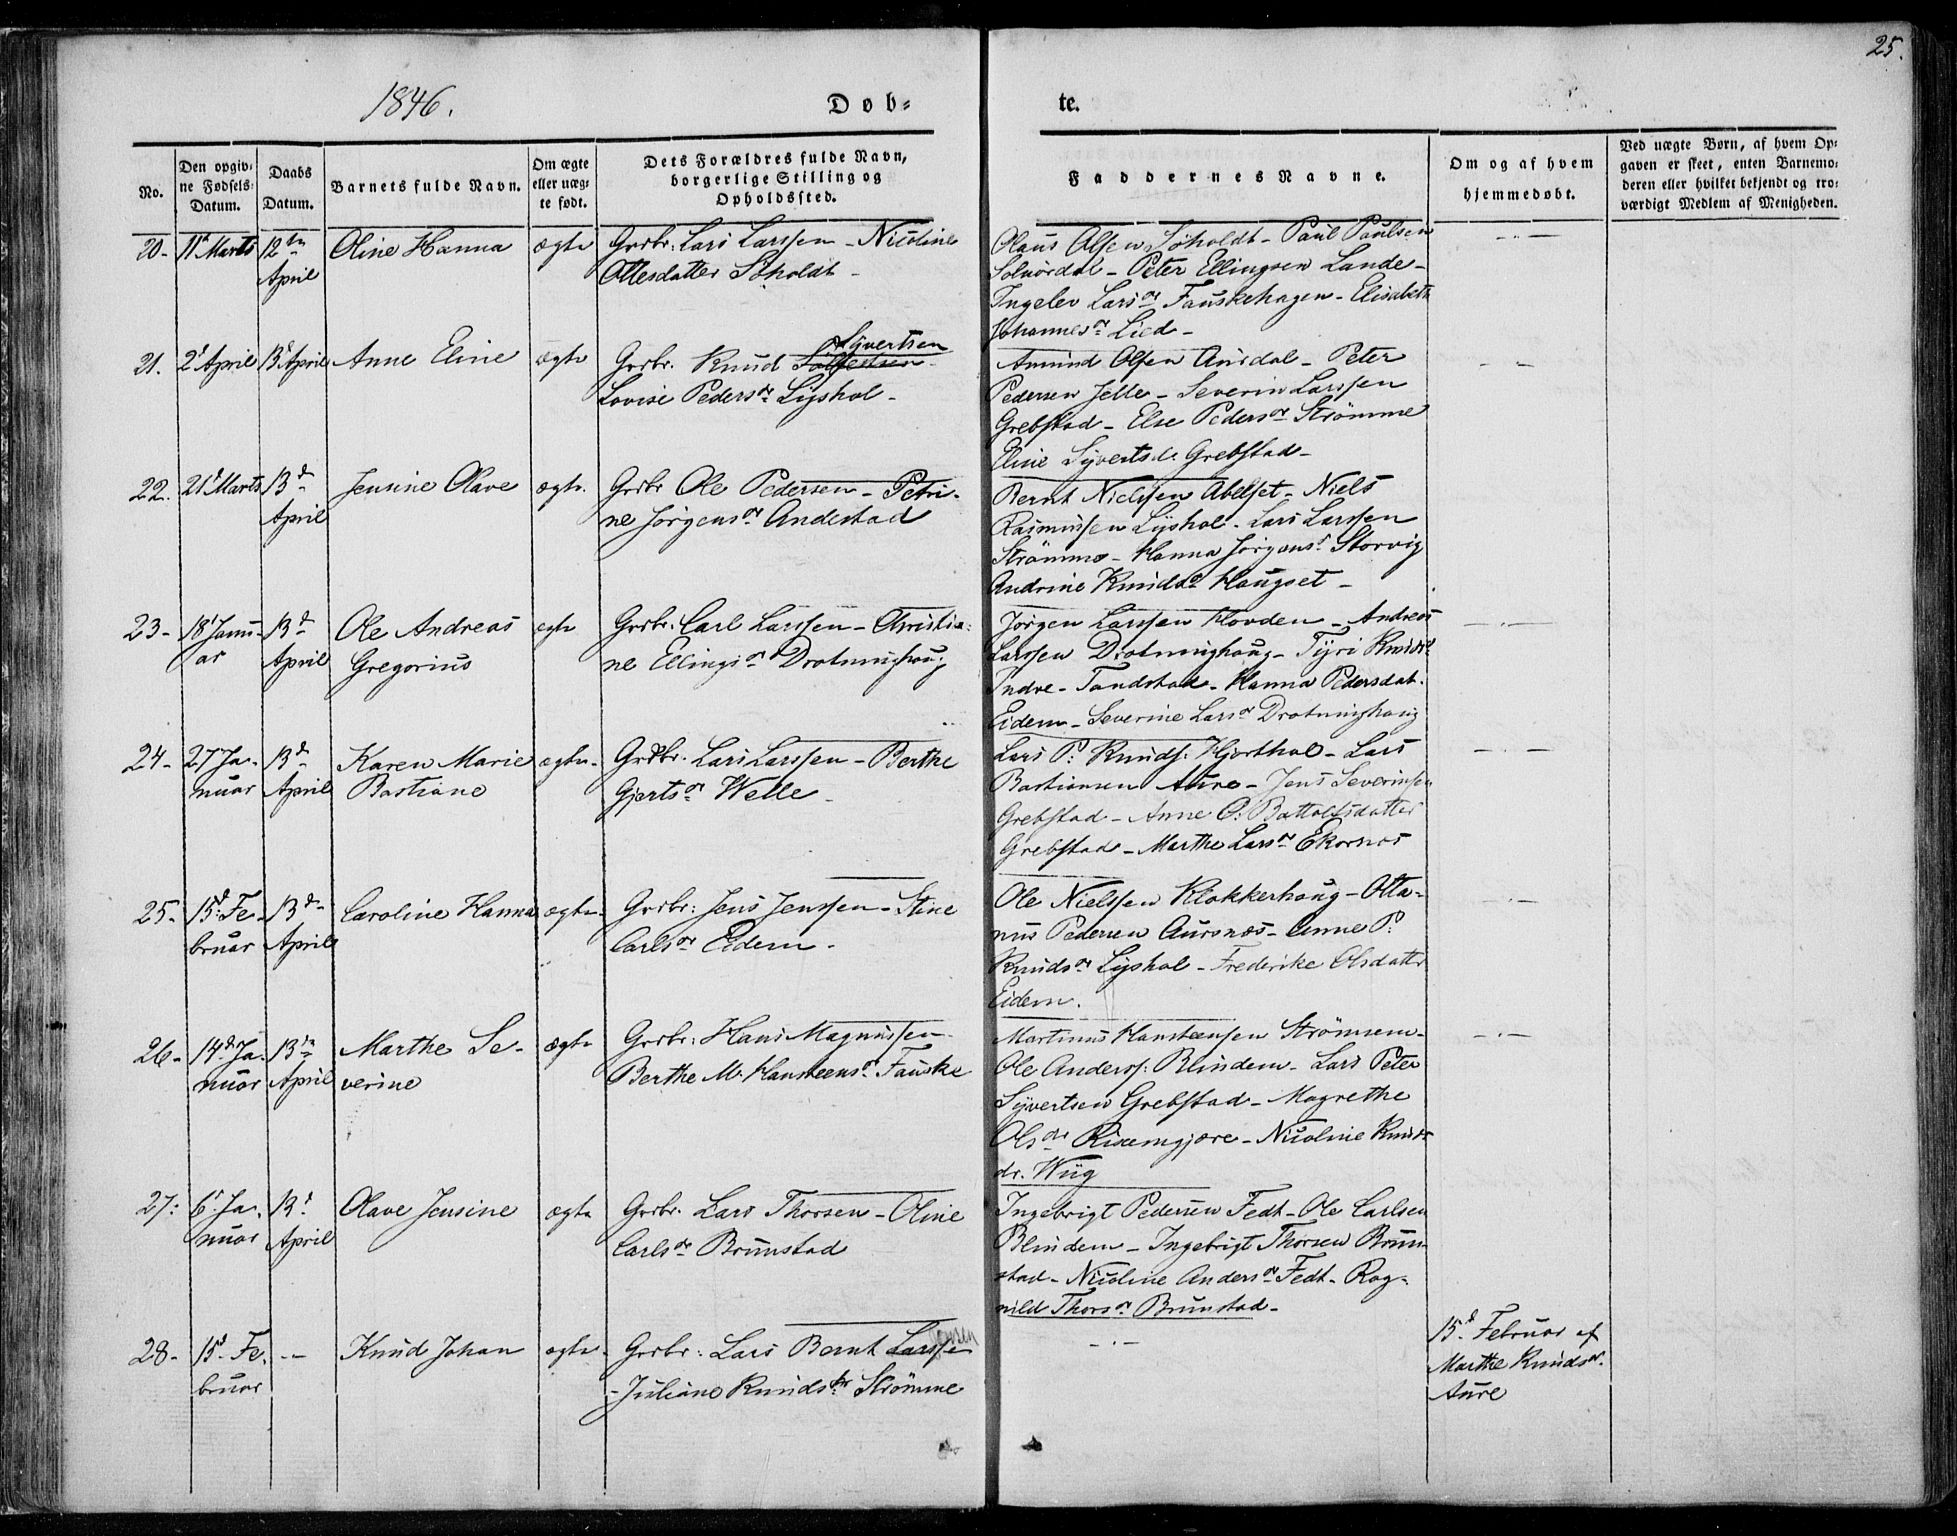 25.
1846.
Døb-
te.
No.
Den opgiv-
ne Fødsels-
Datum.
Daabs
Datum.
Barnets fulde Navn.
Om ægte
eller uæg-
te født.
Dets Forældres fulde Navn,
borgerlige Stilling og
Opholdssted.
Faddernes Navne.
Om og af hvem
hjemmedøbt.
Ved uægte Børn, af hvem Op-
gaven er skeet, enten Barnemo-
deren eller hvilket bekjendt og tro-
værdigt Medlem af Menigheden.
20-
11d Marts
12te
April
Oline Hanna
ægte
Grbr: Lars Larssen - Nicoline
Ottesdatter Søholdt -
Olaus Olsen Søholdt - Paul Paulsen
Solnørdal - Peter Ellingsen Lande -
Ingelev Larsdr Fauskehagen - Elisabeth
Johannesdr Lied -
21.
2d April
13d April
Anne Eline
ægte
Grbr. Knud Syvertsen
Lovise Pedersdr Lyshol -
Amund Olsen Ansdal - Peter
Pedersen Jelle - Severin Larssen
Grebstad - Else Pedersdr Strømme
Eline Syvertsdr Grebstad -
22.
21d Marts
13d
April
Jensine Olave
ægte
Grbr Ole Pedersen - Petri-
ne Jørgensdr Andestad
Bernt Nielssen Abelset - Niels
Rasmussen Lyshol - Lars Larssen
Strømme - Hanna Jørgensdr Storvig
Andrine Knudsdr Haugset -
23-
18d Janu-
ar
13d
April
Ole Andreas
Gregorius
ægte
Grbr: Carl Larssen - Christia-
ne Ellingsdr Drotninghaug
Jørgen Larssen Hovden - Andreas
Larssen Drotninghaug - Tyri Knudsdr
Indre - Tandstad - Hanna Pedersdat.
Eidem - Severine Larsdr Drotninghaug
24-
27d Ja-
nuar
13d
April
Karen Marie
Bastiane
ægte
Grbr. Lars Larssen - Berthe
Gjertsdr Welle -
Lars P: Knuds: Hjorthol - Lars
Bastiansen Aure - Jens Severinsen
Grebstad - Anne O: Battolfsdatter
Grebstad - Marthe Larsdr Ekornæs
25-
15d Fe-
bruar
13d
April
Caroline Hanna
ægte
Grbr: Jens Jenssen - Stine
Carlsdr Eidem -
Ole Nielssen Klokkerhaug - Otta-
nus Pedersen Aursnæs - Anne P:
Knudsdr Lyshol - Frederike Olsdatter
Eidem.
26-
14d Ja-
nuar
13de
April
Marthe Se-
verine
ægte
Grbr: Hans Magnussen -
Berthe M. Hansteensdr Fauske
Martinus Hansteensen Strømsem -
Ole Anderss: Blindem - Lars Peter
Syvertsen Grebstad - Magrethe
Olsdr Risemgjære - Nicoline Knuds
dr. Wiig
27:
6d Ja-
nuar
13d
April
Olave Jensine
ægte
Grbr. Lars Thorsen - Oline
Carlsdr Brunstad
Ingebrigt Pedersen Fedt - Ole Carlsen
Blindem - Ingebrigt Thorsen Brun-
stad - Nicoline Andersdr Fedt - Rag-
nild Thorsdr Brunstad -
28-
15d Fe-
bruar
Knud Johan
ægte
Grbr: Lars Bernt Larssen
- Juliane Knudsdr Strømme
15d Februar af
Marthe Knudsdr.
Aure